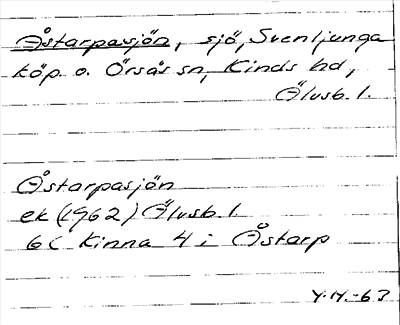 Åstarpasjön, sjö, Svenljunga
köp. o. Örsås sn, Kinds hd,
Älvsb. l.
Åstarpasjön
ek (1962) Älvsb. l.
6C Kinna 4 i Åstarp
Y.H.-63